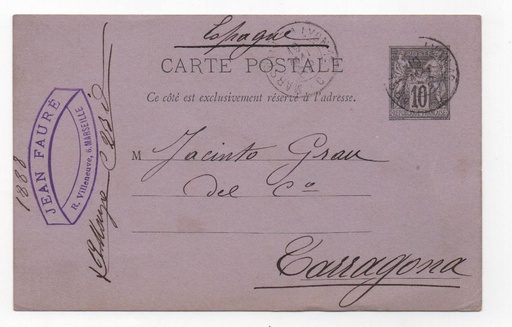 Espagne
CARTE POSTALE
Ce côté est exclusivement réservé à l'adresse.
10
M Jacinto Grau
del Co
Tarragona
JEAN FAURÉ
R. Villeneuve, 6. MARSEILLE
1888